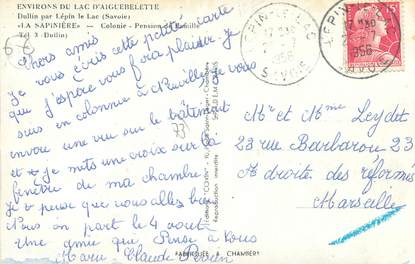 ENVIRONS DU LAC D'AIGUEBELETTE
Dullin par Lépin le Lac (Savoie)
«LA SAPINIÈRE» — Colonie - Pension de Famille
Tél. 3 (Dullin)
Chers amis
je vous écris cette petite carte
que j'espace vous fera plaisir. Je
suis en colonnie à je vous
envoie une vue sur le bâtiment
et je mets une croix sur la
fenêtre de ma chambre
Je pense que vous allez bien
Nous on part le 4 août
Une amie que Pense à vous
Marie Claude
Mr et Mme Leydet
23 rue Barbarou 23
A droite des réformés
Marseille
LEPIN-LE-LAC
1956
SAVOIE
LEPIN-LE-LAC
1956
SAVOIE
15
73
Reproduction interdite
FABRIQUÉE À CHAMBÉRY